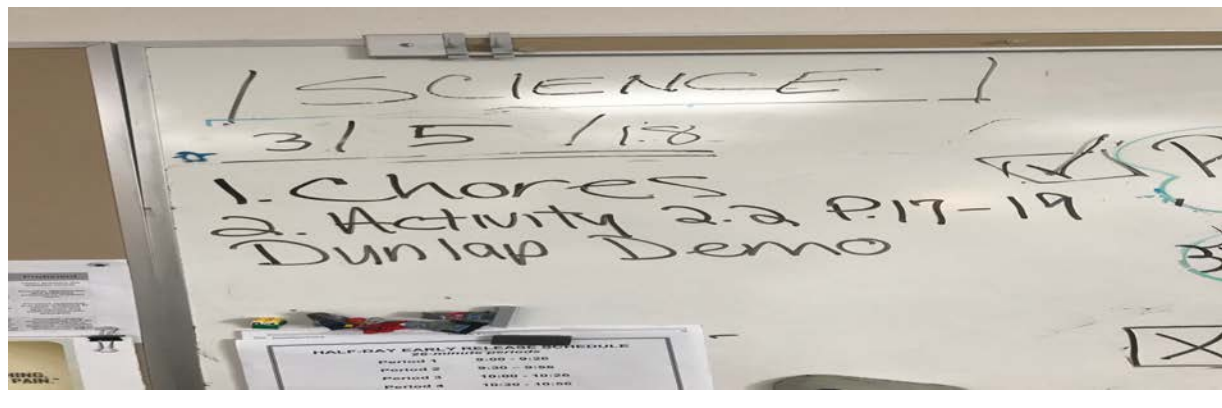 SCIENCE
3/5/18
1. Chores
2. Activity 2.2 P.17-19
Dunlap Demo
HALF-DAY EARLY RELEASE SCHEDULE
26-minute periods
Period 1 9:00 - 9:26
Period 2 9:30 - 9:56
Period 3 10:00 - 10:26
Period 4 10:30 - 10:56
PAIN."